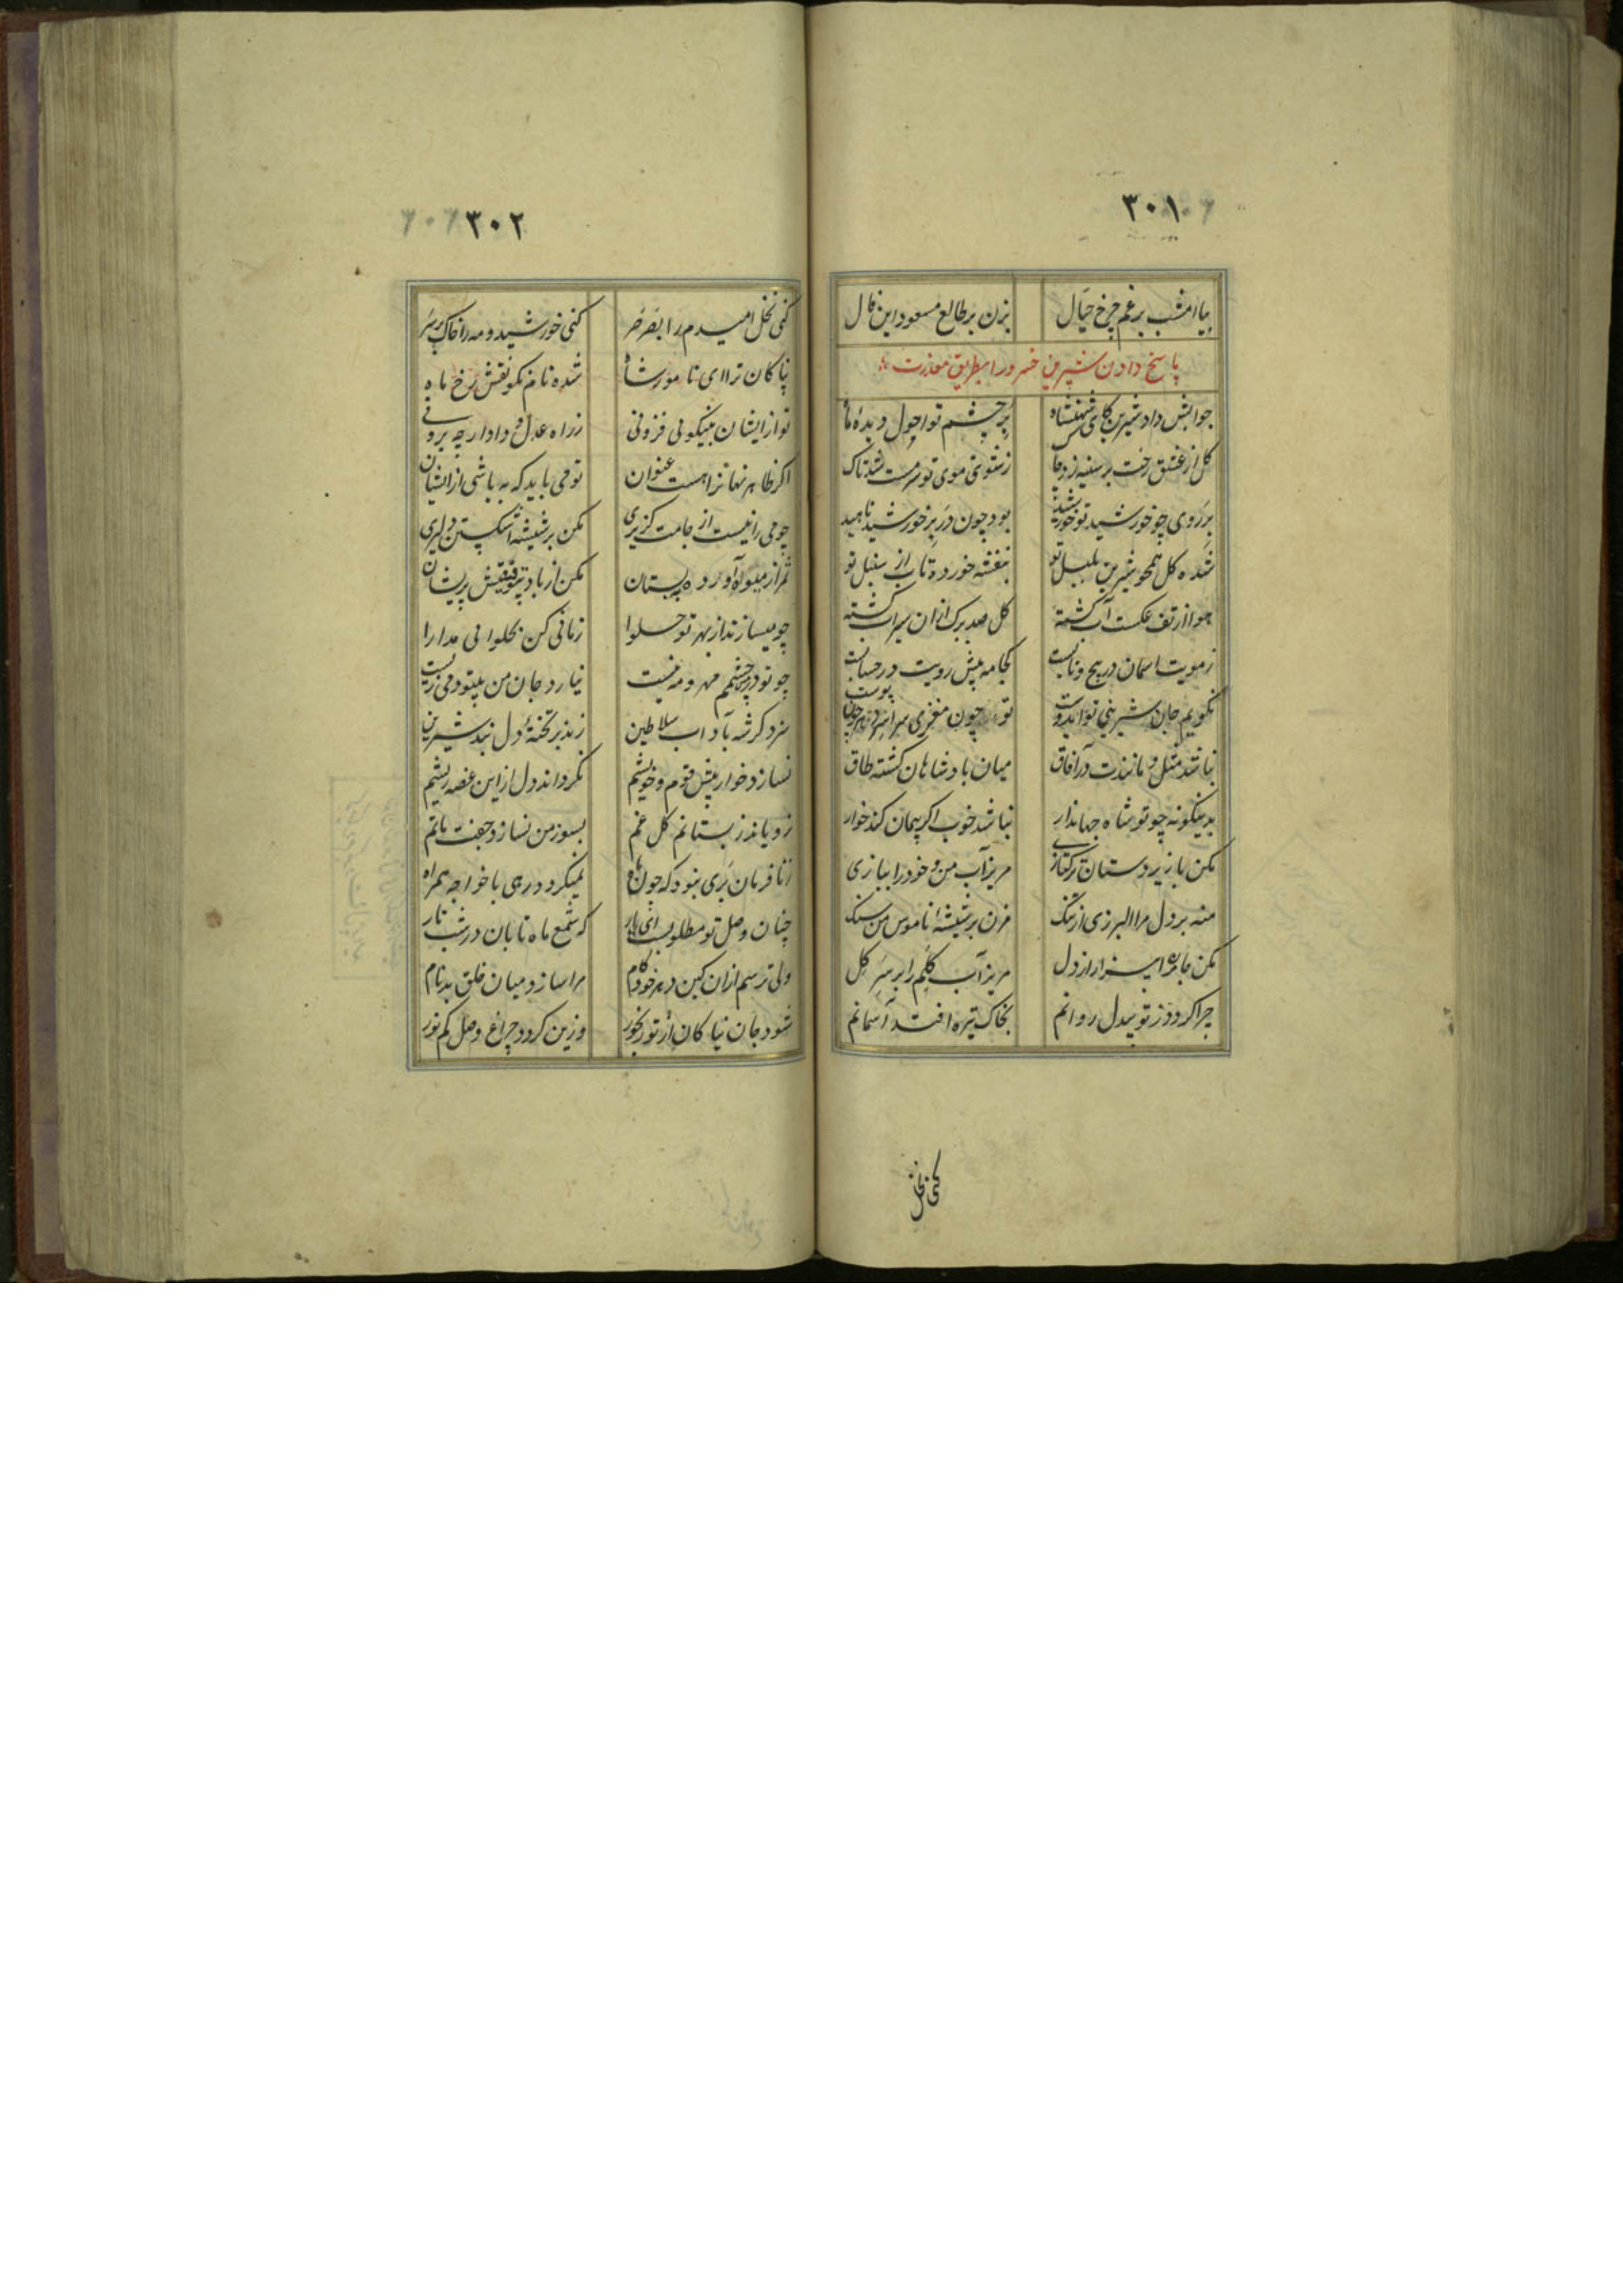 ۳۰۱
بیا امشب برغم چرخ حیال بزن بر طالع مسعود این فال
پاسخ دادن شیرین خسرو را بطریق معذرت
جوابش داد شیرین کای شهنشاه بر چشم تو احول دیدهٔ ماه
کل از عشق رخت بر سینه زد چاک ز شوق موی تو سرمست شد تاک
بر روی چو خورشید تو خورشید بود چون در بر خورشید ناهید
شده کل همچو شیرین بلبل تو بنفشه خورده تاب از سنبل تو
هوا از تف عکست آب کشته کل صد برک ازان سیراب کشته
ز مویت اسمان در پیچ و تابست کجا مه پیش رویت در حسابست
نکویم جان شیرینی تو ایدوست تو چون مغزی سراسر پوست
نباشد مثل و مانندت در آفاق میان بادشاهان کشته طاق
بدینکونه چو تو شاه جهاندار نباشد خوب اکر پیمان کند خوار
مکن با زیردستان ترکتازی مریز آب من و خود را ببازی
منه بر دل مرا البرزی از ننک مزن بر شیشهٔ ناموس من سنک
مکن جابره ا را از دل مریز آب کلم را بر سر کل
چرا کردد ز تو بیدل روانم بخاک تیره افتد آسمانم
کنی نخل
۳۰۲
کنی نخل امیدم را بصرصر کنی خورشید و مه را خاک بر سر
نیاکان ترا ای نامور شاه شده نام نکو نقش رخ ماه
تو از ایشان بنیکوئی فزونی ز راه عدل و داد ار چه برونی
اکر ظاهر نهانرا هست عنوان تو می باید که به باشی از ایشان
چو می را نیست از جامت کزیری مکن بر شیشه اشکستن دلیری
ثمر از میوه آورده بستان مکن از باد پریشان
چو میسازند از بهر تو حلوا زمانی کن بحلوائی مدارا
چو تو در چشمم مهر و مه نیست نیارد جان من بیتو دمی زیست
سزد کر شه بآداب سلاطین زند بر تختهٔ دل نقد شیرین
نسازد خوار پیش قوم و خویشم نکرداند دل از این غصه ریشم
نرویاند ز بستانم کل غم بسوز من نسازد جفت ماتم
ازنا فرمان بری نبود که چون ماه نمیکردد رهی با خواجه همراه
چنان وصل تو مطلوبست ای یار که شمع ماه تابان در شب تار
ولی ترسم ازان کین دهر خودکام مرا سازد میان خلق بدنام
شود جان نیاکان از تو رنجور وزین کردد چراغ وصل کم نور